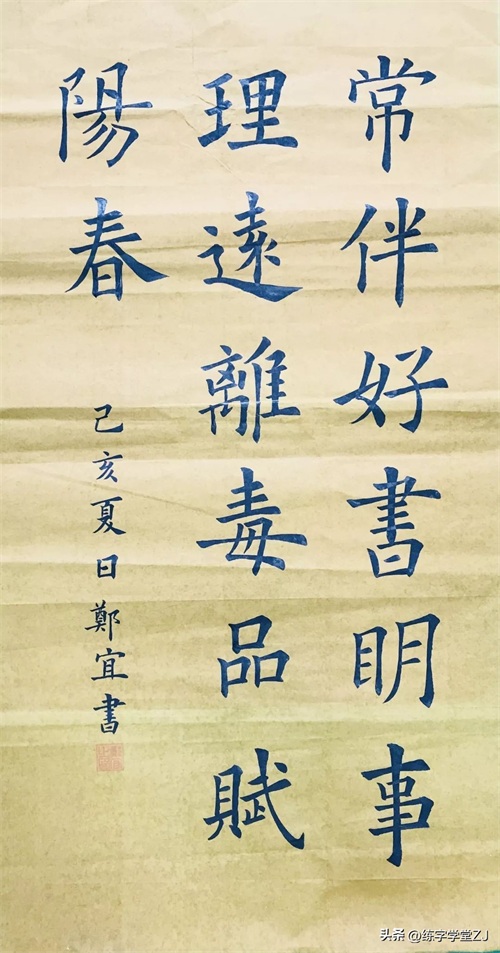 常伴好書眀事
理遠離毒品賦
陽春
己亥夏日鄭宜書
头条 @练字学堂ZJ